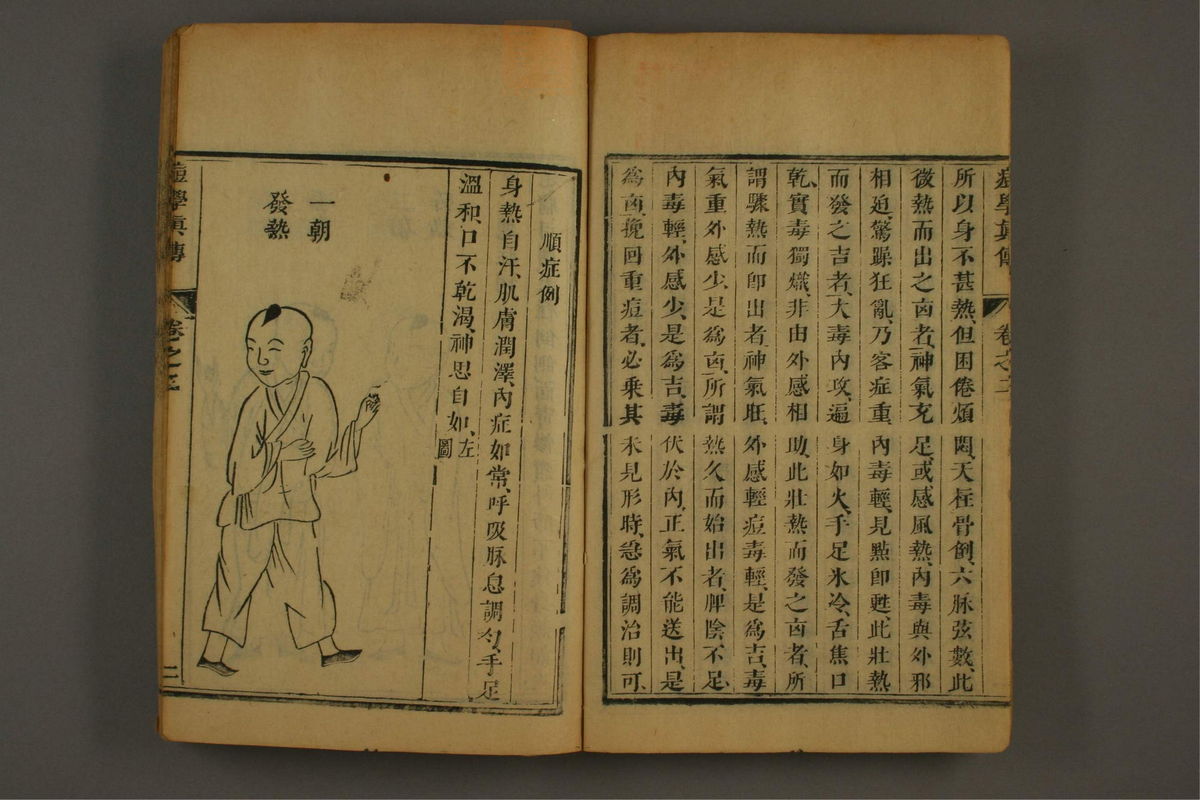 所以身不甚熱但困倦煩悶、天柱骨倒、六脉弦數、此
微熱而出之凶者、神氣充足、或感風熱、內毒與外邪
相廹、驚躁狂亂乃客症重、內毒輕、見㸃卽甦、此壯熱
而發之吉者、大毒內攻、遍身如火、手足氷冷、舌焦口
乾、實毒獨熾、非由外感相助、此壯熱而發之凶者、所
謂驟熱而卽出者、神氣旺、外感輕痘毒輕、是爲吉、毒
氣重外感少、是爲凶、所謂熱久而始出者、脾陰不足、
內毒輕、外感少、是爲吉、毒伏於內、正氣不能送出、是
爲凶、挽回重痘者、必乘其未見形時、急爲調治則可、
卷之二
順症例
身熱自汗、肌膚潤澤、內症如常、呼吸脉息調勻、手足
溫和、口不乾渴、神思自如、左圖
一朝
發熱
痘學眞傳
卷之二
二